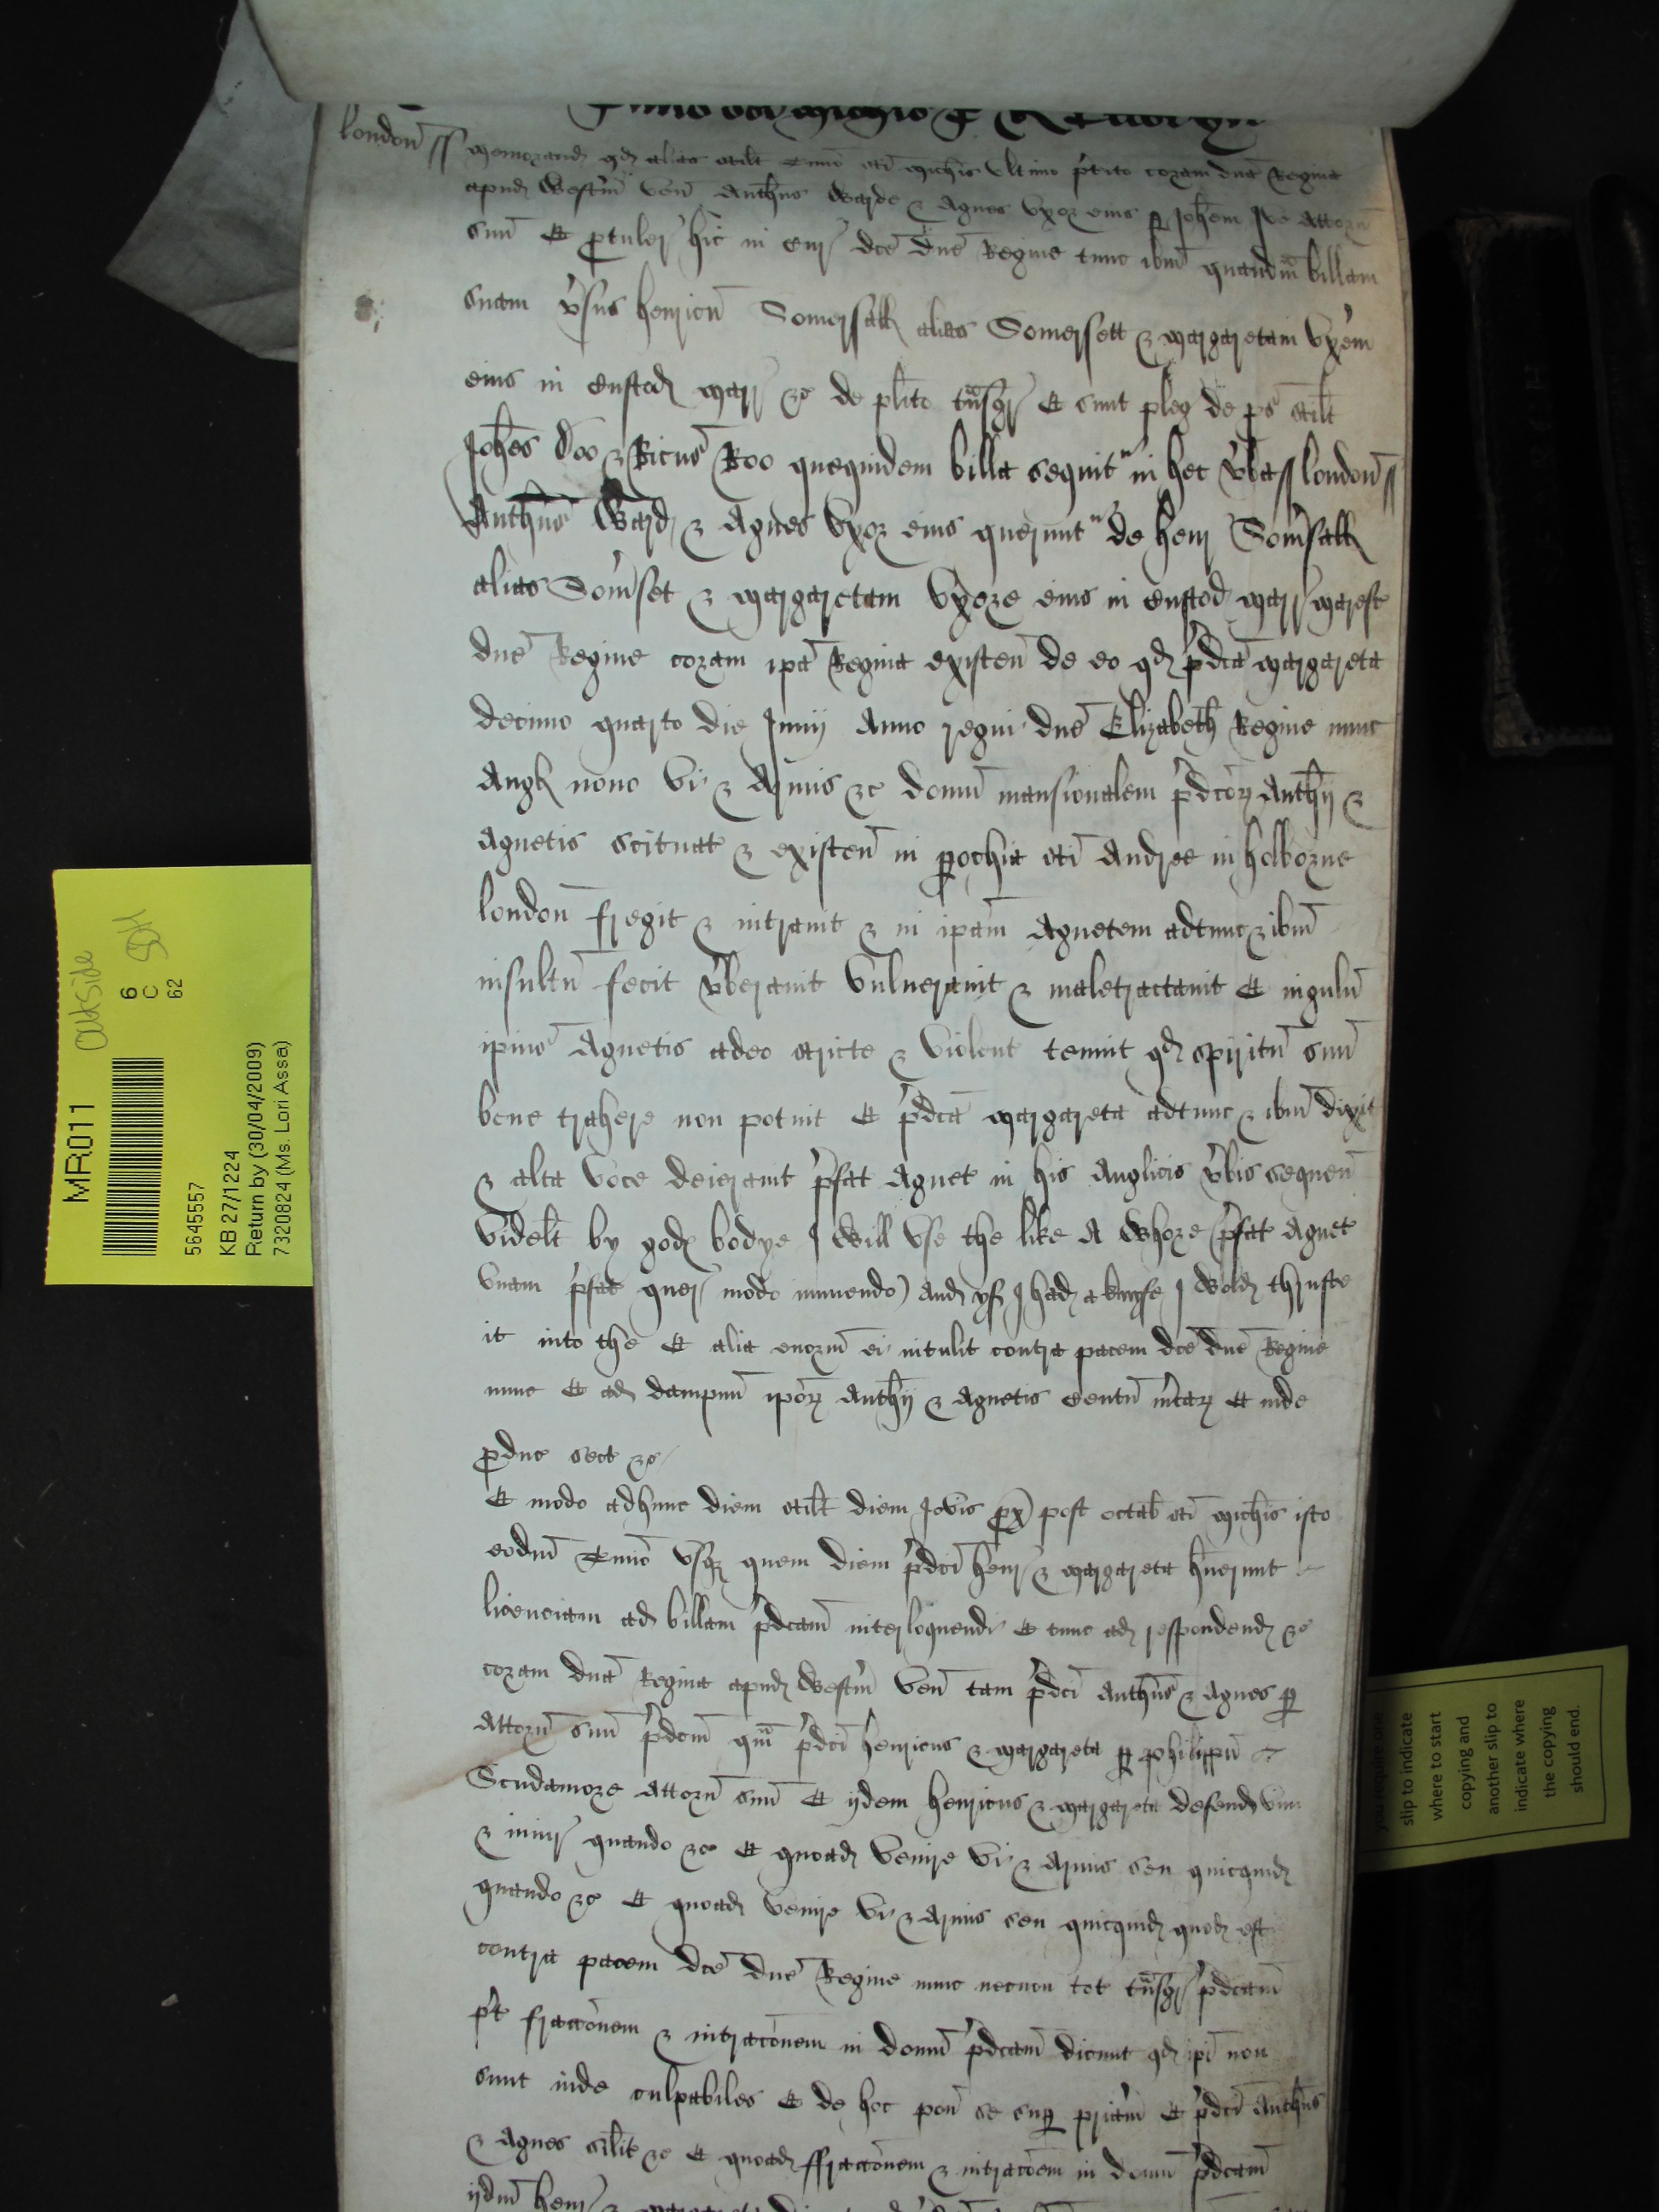 london
Memorand qd alias scilt Termio sci Michis Ultimo pterito coram dna Regina
apud Westm ven Anthus Warde & Agnes Uxor eius p Johem Ive Attorn
suu Et ptuler hic in cur dce dne Regine tunc ibm quandm billam
suam vsus henricu Somersall alias Somersett & margaretam Uxem
eius in custod marr &c de plito tnsgr Et sunt pleg de ps scilt
Johes Doo & Ricus Roo quequidem billa sequit in hec vba london
Anthus Ward & Agnes Uxor eius querunt de henr Somsall
alias Somset & margaretam Uxore eius in custod marr maresc
dne Regine coram ipa Regina existen de eo qd pdca margareta
decimo quarto die Junij Anno regni dne Elizabeth Regine nunc
Angl nono Vi & Armis &c domu mansionalem pdcor Anthij &
Agnetis scituat & existen in pochia sci Andree in holborne
london fregit & intravit & in ipam Agnetem adtunc & ibm
insultu fecit vberavit Vulneravit & maletractavit Et iugulu
ipius Agnetis adeo stricte & violent tenuit qd spiritu suu
bene trahere non potuit Et pdca margareta adtunc & ibm dixit
& alta voce deieravit pfat Agnet in his Anglicis vbis sequen
videlt by gods bodye I will vse the like A whore (pfat Agnet
vnam pfat quer modo innuendo) And yf I had a knyfe I wold thruste
it into the Et alia enorm ei intulit contra pacem dce dne Regine
nunc Et ad dampnu ipor Anthij & Agnetis Centu mcar Et inde
pduc sect &c
Et modo adhunc diem scilt diem Jovis px post octab sci michis isto
eodm Termio vsq quem diem pdci henr & margareta huerunt
licenciam ad billam pdcam interloquendi Et tunc ad respondend &c
coram dna Regina apud Westm ven tam pdci Anthus & Agnes p
Attorn suu pdcm qm pdci henricus & margareta p philippu
Scudamore Attorn suu Et ijdem henricus & margareta defend vim
& iniur quando &c Et quoad venire vi & Armis seu quicquid
quando &c Et quoad venire vi & Armis seu quicquid quod est
contra pacem dce dne Regine nunc necnon tot tnsgr pdcam
pt fracconem & intraconem in domu pdcam dicunt qd ipi non
sunt inde culpabiles Et de hoc pon se sup priam Et pdci Anthus
& Agnes silit &c Et quoad ffracconem & intracoem in domu pdcam
ijdm henr & margareta
MR011
outside
6
C
62
5645557
KB 27/1224
Return by (30/04/2009)
7320824 (Ms. Lori Assa)
you require one
slip to indicate
where to start
copying and
another slip to
indicate where
the copying
should end.